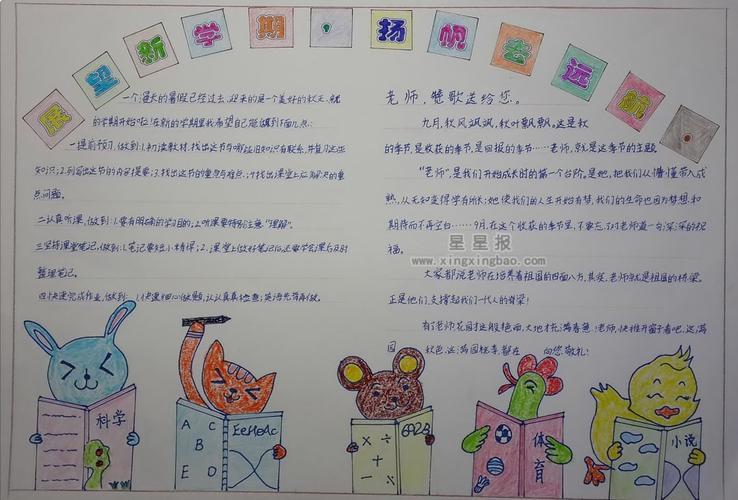 展望新学期·扬帆去远航
一个漫长的暑假已经过去,迎来的是一个美好的秋天,新
的学期开始啦!在新的学期里我希望自己能做到下面几点:
一提前预习,做到:1.初读教材,找出这节与哪些旧知识有联系,并复习这些
知识;2.列写出这节的内容提要;3.找出这节的重点与难点;4.找出课堂上应解决的重
点问题。
二认真听课,做到:1.要有明确的学习目的;2.听课要特别注意"理解"。
三坚持课堂笔记,做到:1.笔记要短小精悍;2.课堂上做好笔记后还要学会课后及时
整理笔记。
四快速完成作业,做到:1.快速细心做题,认认真真检查;
老师,赞歌送给您。
九月,秋风飒飒,秋叶飘飘。这是秋
的季节,是收获的季节,是回报的季节……老师,就是这季节的主题
"老师",是我们开始成长时的第一个台阶。是她,把我们从懵懂带入成
熟,从无知变得学有所长;她使我们的人生开始有梦,我们的生命也因为梦想和
期待而不再空白……9月,在这个收获的季节里,不要忘了对老师道一句:深深的祝
福。
大家都说老师在培养着祖国的四面八方,其实,老师就是祖国的桥梁。
正是他们,支撑起我们一代人的脊梁!
有了老师花园才这般艳丽,大地才充满春意!老师,快推开窗子看吧,这满
园 秋色,这满园 都在 向您敬礼!
星星报
www.xingxingbao.com
科学
A C
B
E D
EeHeAc
× ÷
+
−
6928
体
育
小说